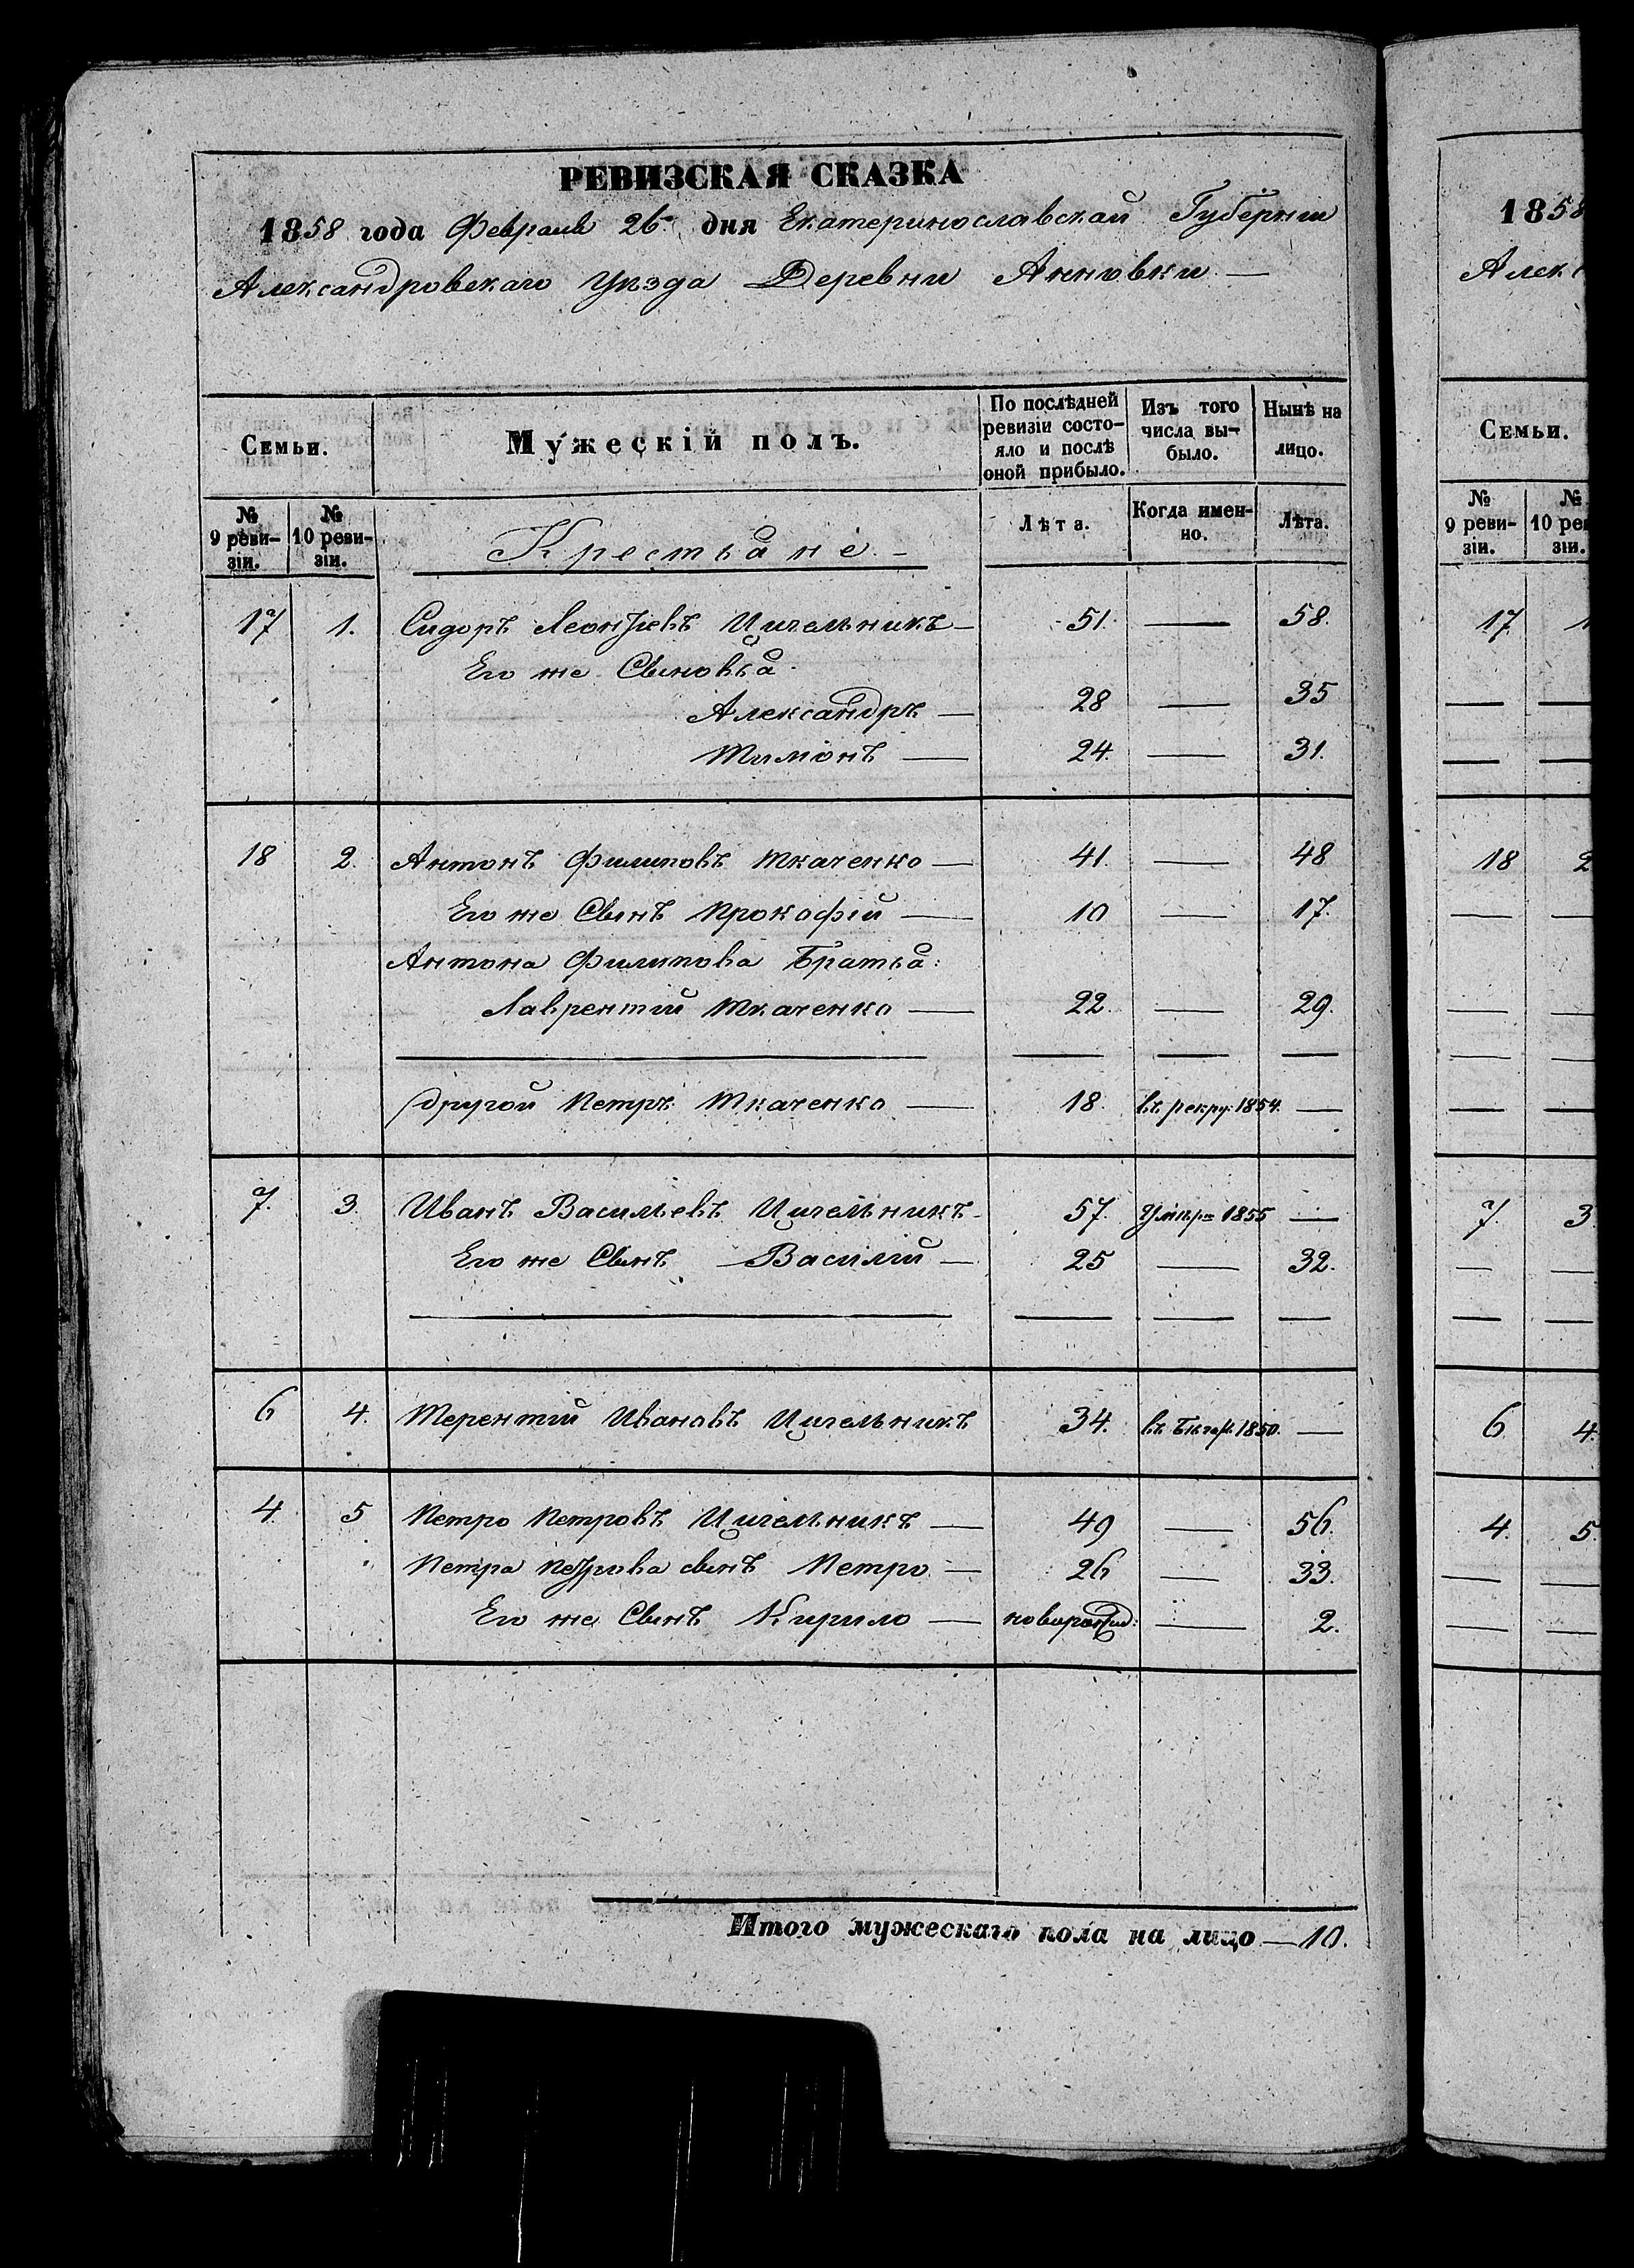 РЕВИЗСКАЯ СКАЗКА
1858 года Февраля 26 дня Екатеринославской Губерніи
Александровскаго Уѣзда Деревни Анновки —
Семьи.
Мужескій полъ.
По послѣдней ревизіи состояло и послѣ оной прибыло.
Изъ того числа выбыло.
Нынѣ на лицо.
№ 9 ревизіи.
№ 10 ревизіи.
Крестьяне. —
Лѣта.
Когда именно.
Лѣта.
17 1. Сидоръ Леонтіевъ Цигельникъ — 51. — 58.
Его же Сыновья
Александръ — 28 — 35
Тимонъ — 24. — 31.
18 2. Антонъ Филиповъ Ткаченко — 41. — 48
Его же Сынъ Прокофій — 10 — 17.
Антона Филипова Братья:
Лаврентій Ткаченко — 22. — 29.
другой Петръ Ткаченко — 18. въ рекру: 1854. —
7. 3. Иванъ Васильевъ Цигельникъ — 57. Умеръ 1855 —
Его же Сынъ Василій — 25 — 32.
6 4. Терентій Ивановъ Цигельникъ 34. въ 1850. —
4. 5 Петро Петровъ Цигельникъ — 49 — 56.
Петра Петрова сынъ Петро — 26 — 33.
Его же Сынъ Кирило — новорожд: — 2.
Итого мужескаго пола на лицо — 10.
1858
Алек
Семьи.
№ 9 ревизіи.
№ 10 реви
зіи.
17 1
18 2
7. 3
6 4.
4. 5.